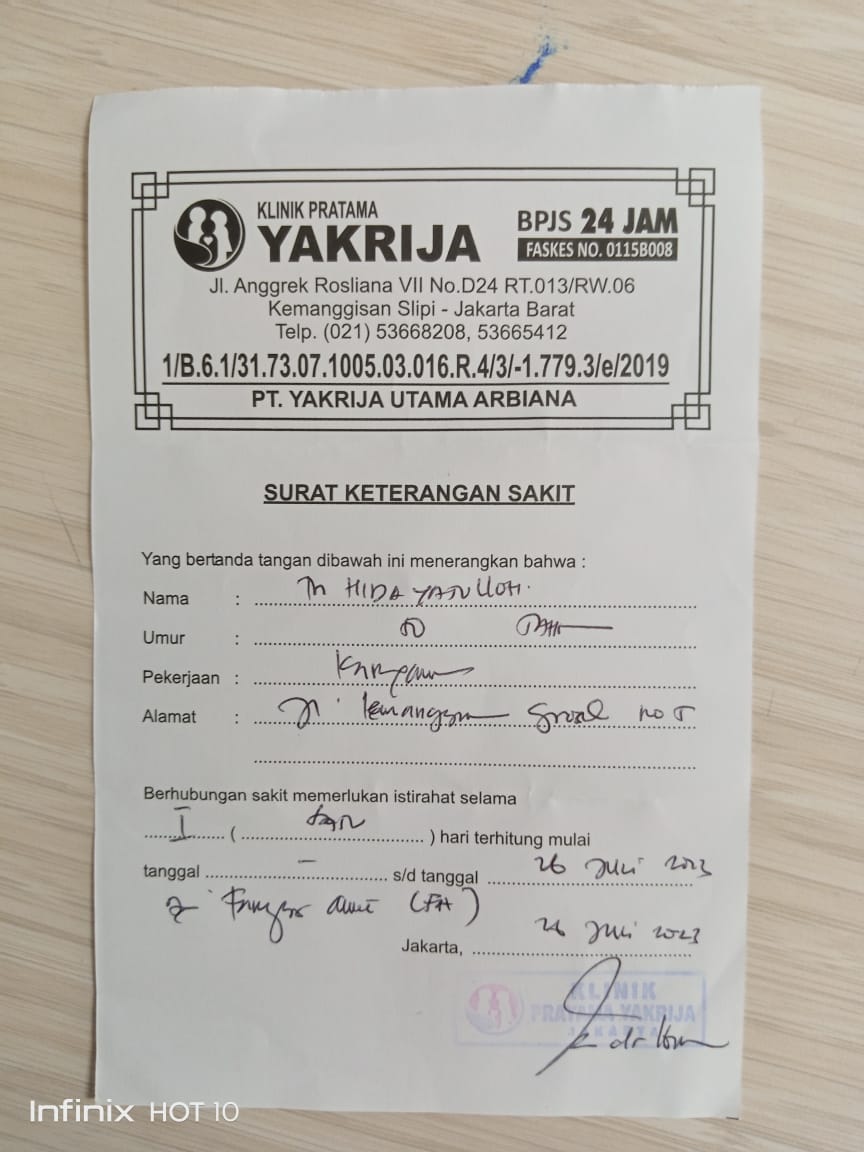 KLINIK PRATAMA
YAKRIJA
BPJS 24 JAM
FASKES NO. 0115B008
Jl. Anggrek Rosliana VII No.D24 RT.013/RW.06
Kemanggisan Slipi - Jakarta Barat
Telp. (021) 53668208, 53665412
1/B.6.1/31.73.07.1005.03.016.R.4/3/-1.779.3/e/2019
PT. YAKRIJA UTAMA ARBIANA
SURAT KETERANGAN SAKIT
Yang bertanda tangan dibawah ini menerangkan bahwa :
Nama : HIDAYATULLOH
Umur :
Pekerjaan :
Alamat : no 5
Berhubungan sakit memerlukan istirahat selama
I ( satu ) hari terhitung mulai
tanggal - s/d tanggal 26 Juli 2023
Jakarta, 26 Juli 2023
KLINIK
PRATAMA YAKRIJA
JAKARTA
Infinix HOT 10